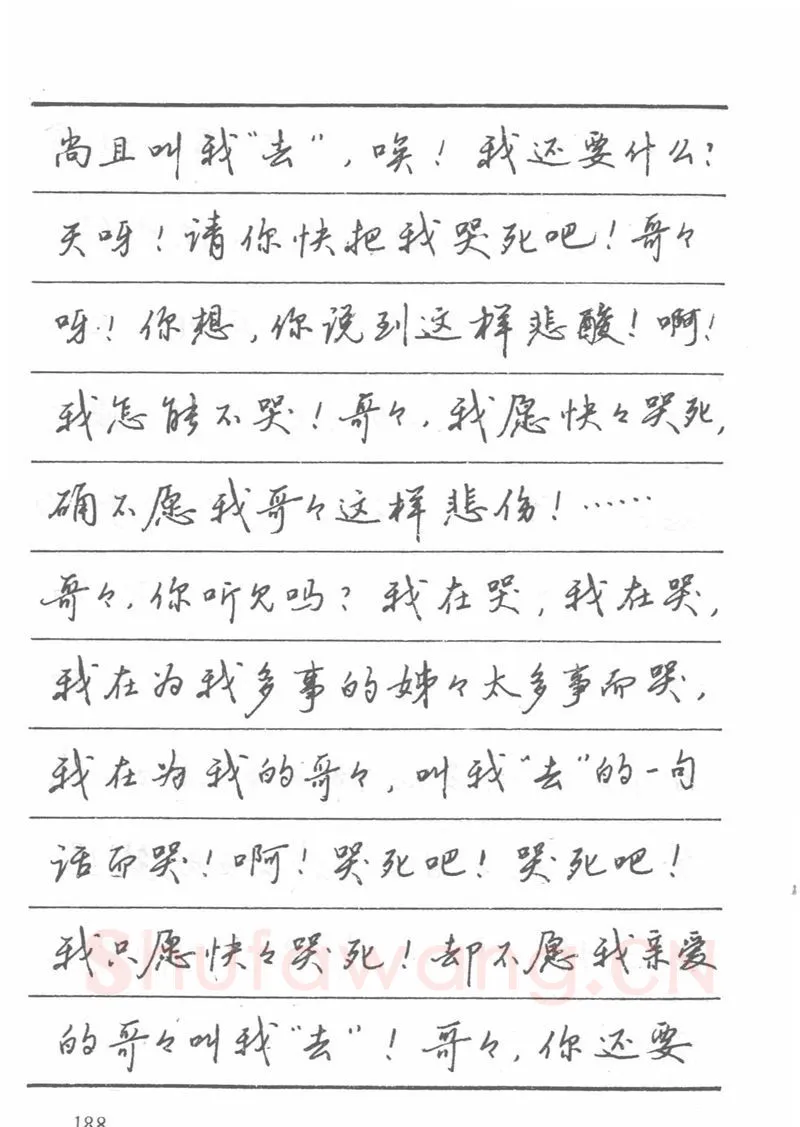 尚且叫我“去”，唉！我还要什么？
天呀！请你快把我哭死吧！哥々
呀！你想，你说到这样悲酸！啊！
我怎能不哭！哥々，我愿快々哭死，
确不愿我哥々这样悲伤！……
哥々，你听见吗？我在哭，我在哭，
我在为我多事的姊々太多事而哭，
我在为我的哥々，叫我“去”的一句
话而哭！啊！哭死吧！哭死吧！
我只愿快々哭死！却不愿我亲爱
的哥々叫我“去”！哥々，你还要
188
Shufawang.CN